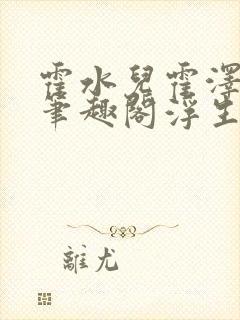 霍水兒霍澤
筆趣閣浮生
離尤